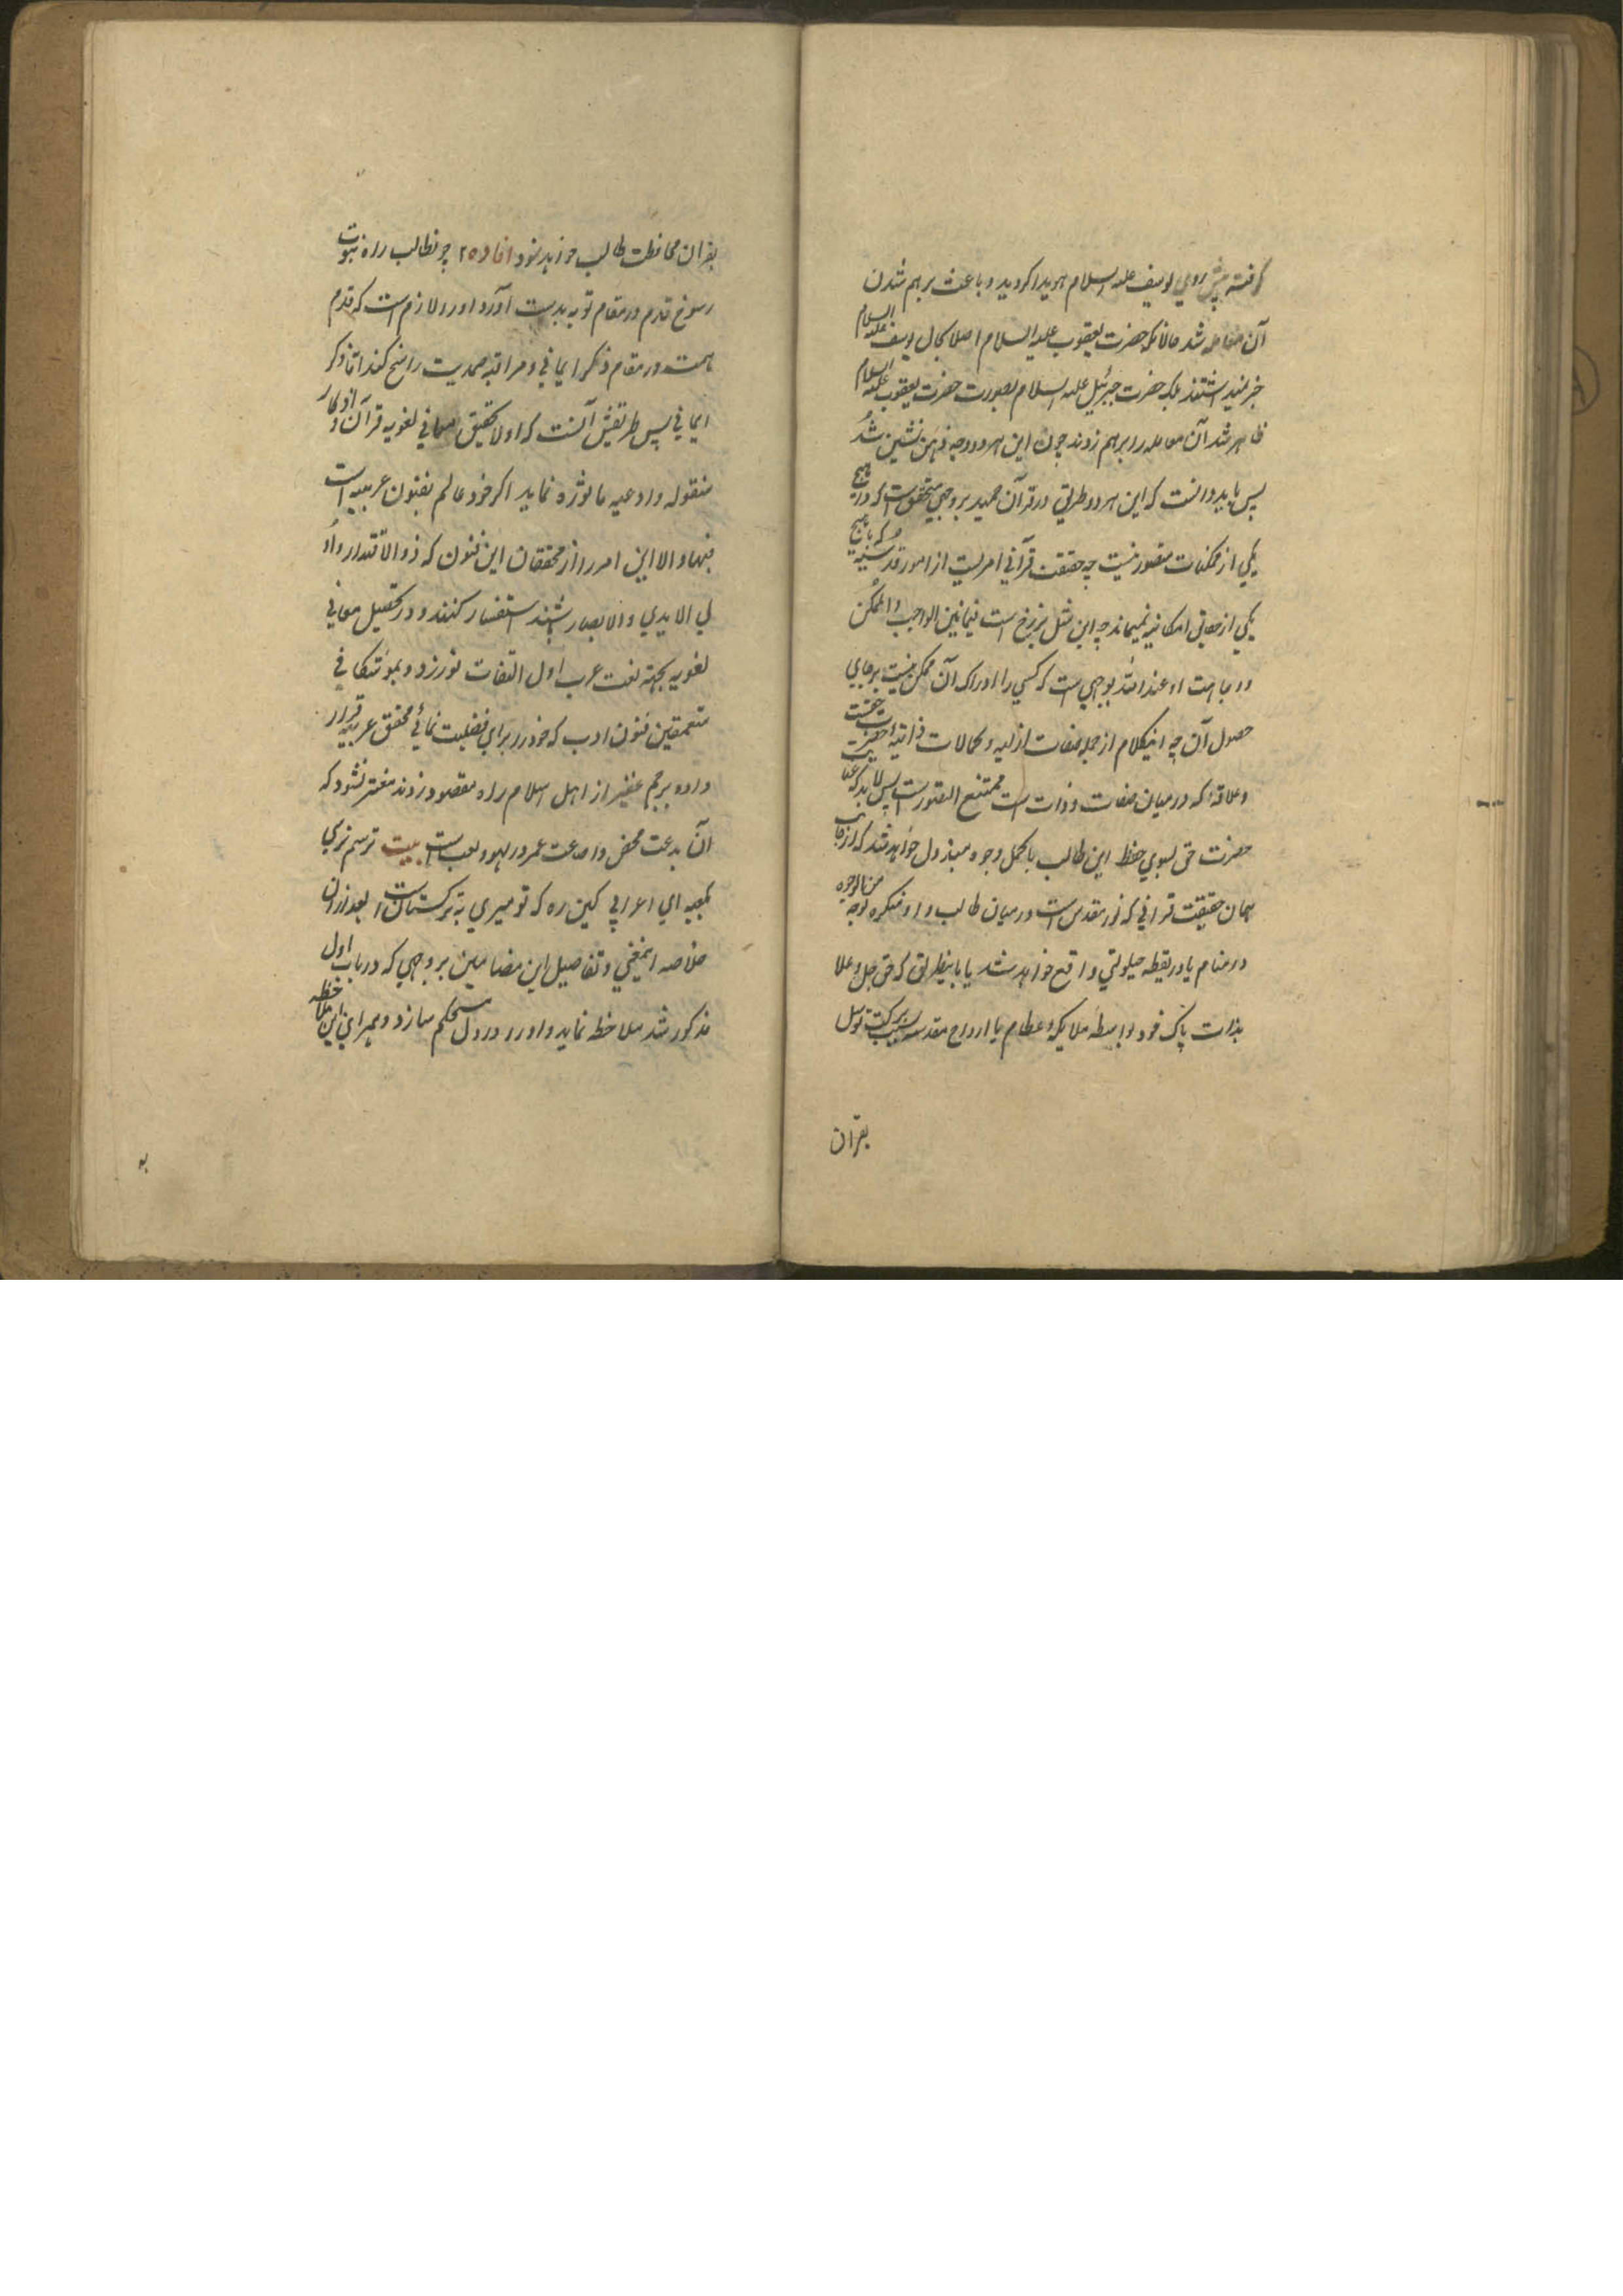 گرفته پیش روی یوسف علیه السلام هویدا گردید و باعث برهم شدن
آن معامله شد حالانکه حضرت یعقوب علیه السلام اصلا بحال یوسف علیه السلام
خبر نمیداشتند بلکه حضرت جبرئیل علیه السلام بصورت حضرت یعقوب علیه السلام
ظاهر شد آن معامله را برهم زدند چون این هر دو وجه ذهن نشین شد
پس باید دانست که این هر دو طریق در قرآن مجید بر وجهی متحقق است که در هیچ
یکی از ممکنات متصور نیست چه حقیقت قرآنی امریست از امور قدسیه که با هیچ
یکی از حقایق امکانیه نمیماند چه این مثل برزخ است فیما بین الواجب و الممکن
و وجاهت او عند الله بوجهی است که کسی را ادراک آن ممکن نیست بر جای
حصول آن چه اینکلام از جمله صفات ازلیه و کمالات ذاتیه حضرت حق است
و علاقهٔ که در میان صفات و ذات است ممتنع التصور است پس لابد که عنایت
حضرت حق بسوی حفظ این طالب باکمل وجوه مبذول خواهد شد که از جانب
همان حقیقت قرانی که نور مقدس است در میان طالب و او منکره من الوجوه بوجه
در منام یا در یقظه حیلولتی واقع خواهد شد یا باینطریق که حق جل و علا
بذات پاک خود بواسطه ملایکه عظام یا ارواح مقدسه بسبب برکت توسل
بقران
بقران محافظت طالب خواهد نمود افاده ۲ چون طالب راه نبوت
رسوخ قدم در مقام توبه بدست آورد او را لازم است که قدم
همت در مقام ذکر ایمانی و مراقبه صمدیت راسخ کند اما ذکر
ایمانی پس طریقش آنست که اولا تحقیق معانی لغویه قرآن و اذکار
منقوله و ادعیه ماثوره نماید اگر خود عالم بفنون عربیه است
فبها و الا این امر را از محققان این فنون که ذوالاقتدار و او
لی الایدی و الابصار باشند استفسار کنند و در تحصیل معانی
لغویه بجهة لغت عرب اول التفات نورزد و بموشکافی
متعمقین فنون ادب که خود را برای فضیلت نمائی محقق عربیه قرار
داده بر جم غفیر از اهل اسلام راه مقصود زدند مغتر نشود که
آن بدعت محض و اضاعت عمر در لهو و لعب است بیت ترسم نرسی
بکعبه ای اعرابی کین ره که تو میری به ترکستان است بعد از آن
خلاصه اینمعنی و تفاصیل این مضامین بر وجهی که در باب اول
مذکور شد ملاحظه نماید و او را در دل مستحکم سازد و همراه این ملاحظه
به